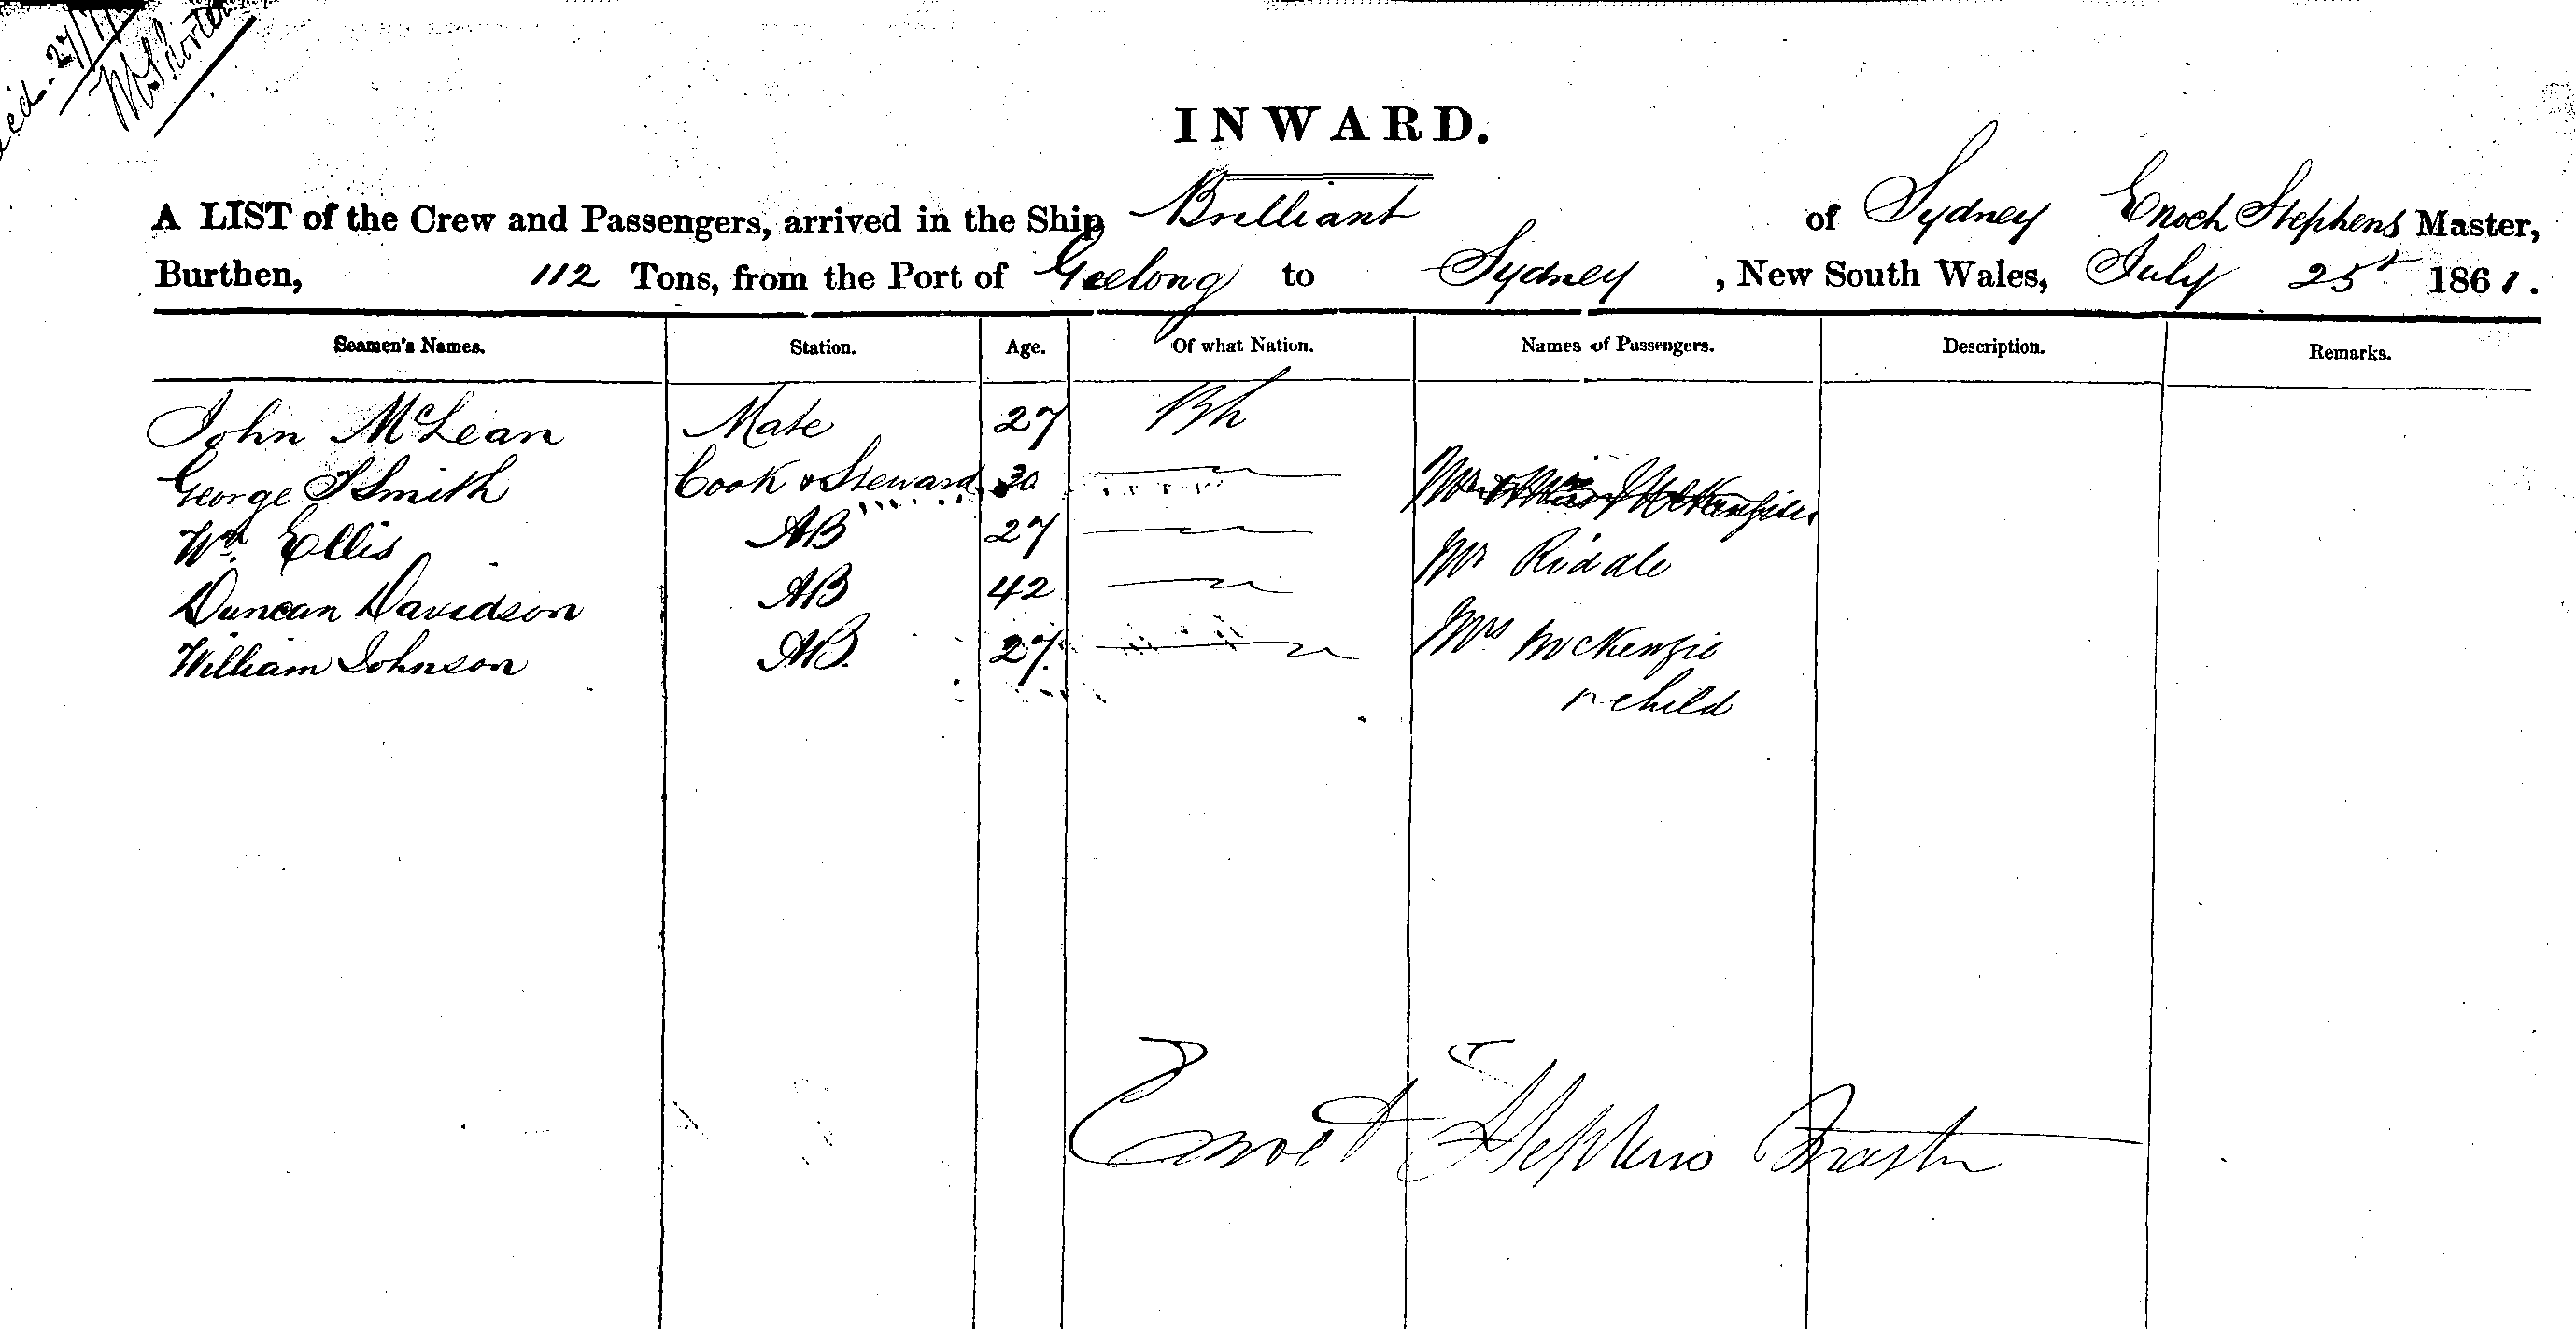 INWARD.
A LIST of the Crew and Passengers, arrived in the Ship Brilliant of Sydney Enoch Stephens Master,
Burthen, 112 Tons, from the Port of Geelong to Sydney, New South Wales, July 25t 1861.
Seamen's Names. Station. Age. Of what Nation. Names of Passengers. Description. Remarks.
John McLean Mate 27 Bh
George S Smith Cook & Steward 30
Wm Ellis AB 27
Mr Riddle
Duncan Davidson AB 42
William Johnson AB. 27. Mrs McKenzie
& child
Enoch Stephens Master